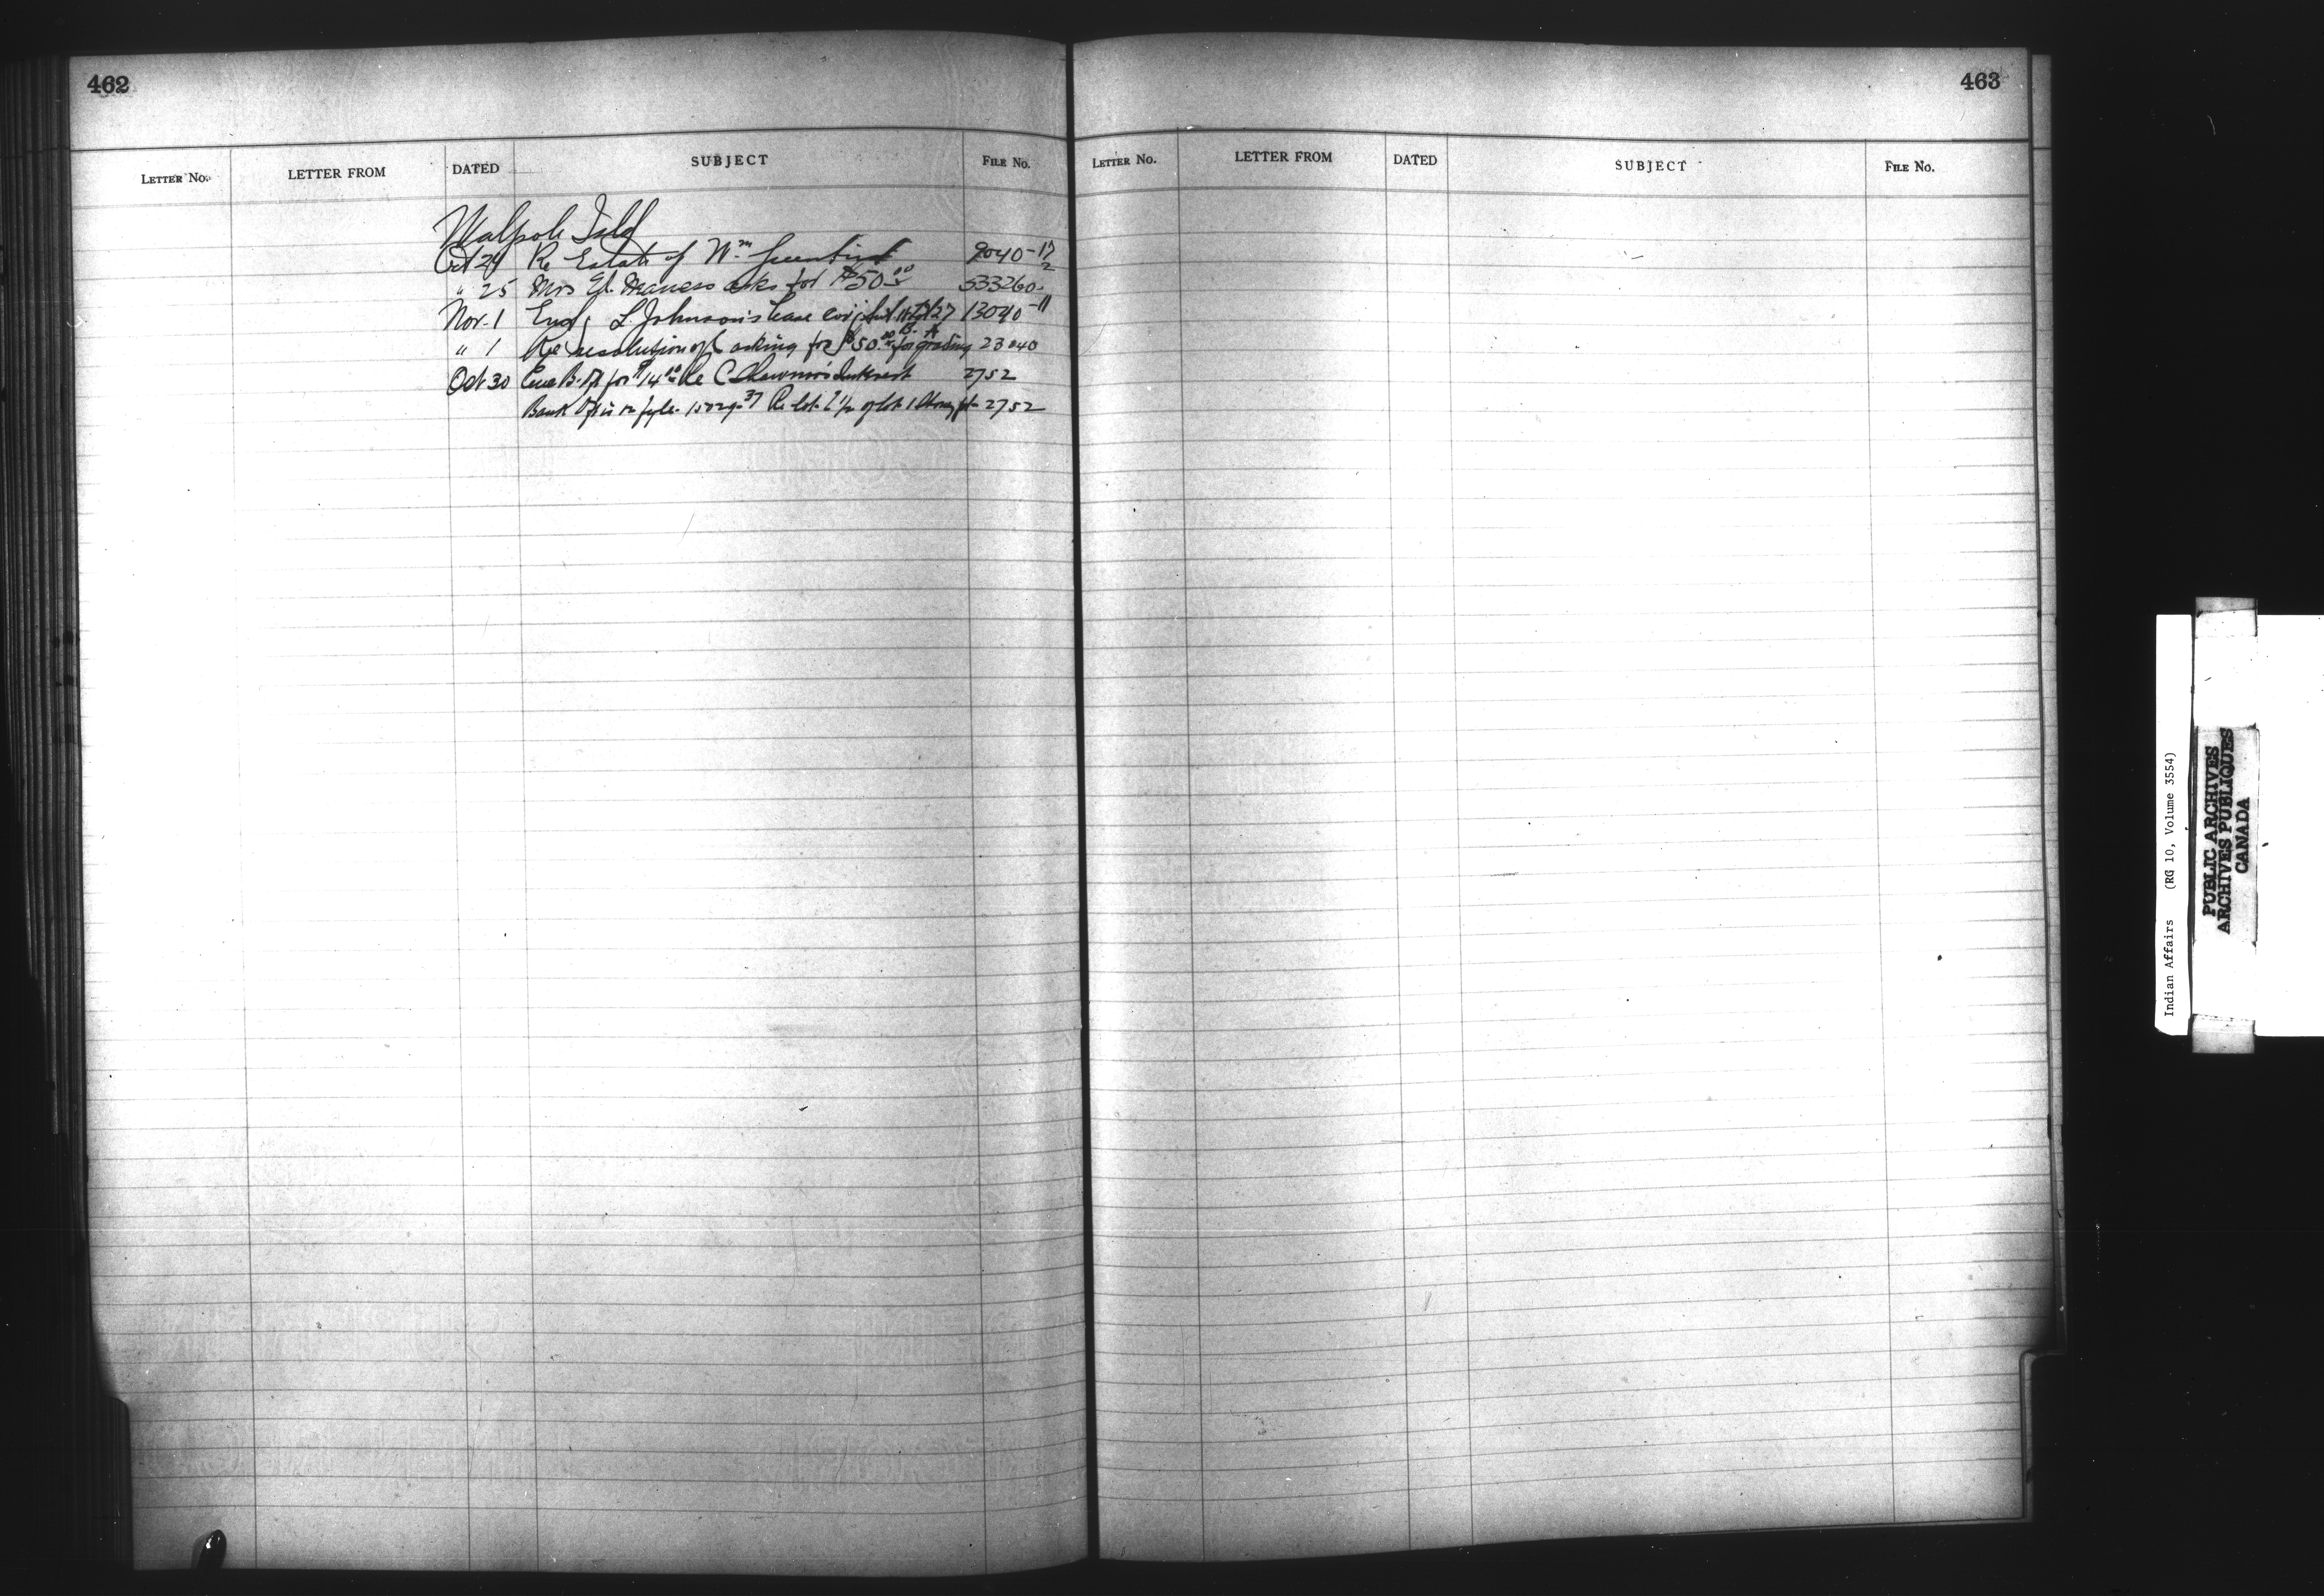 462
LETTER No.
LETTER FROM
DATED
SUBJECT
FILE No.
Walpole Isld
Oct 24 Re Estate of Wm Greenbird 9040-17/2
" 25 Mrs El. Maness asks for $50.00 533260
Nov. 1 L. Johnson's lease 13040-11
" 1 Re resolution of asking for $50.00 for grading 23040
Oct 30 B. Df for $14.00 Re C. Interest 2752
Bank Dft is on fyle 15029-37 Re lot 1 2752
463
LETTER No.
LETTER FROM
DATED
SUBJECT
FILE No.
Indian Affairs (RG 10, Volume 3554)
PUBLIC ARCHIVES
ARCHIVES PUBLIQUES
CANADA